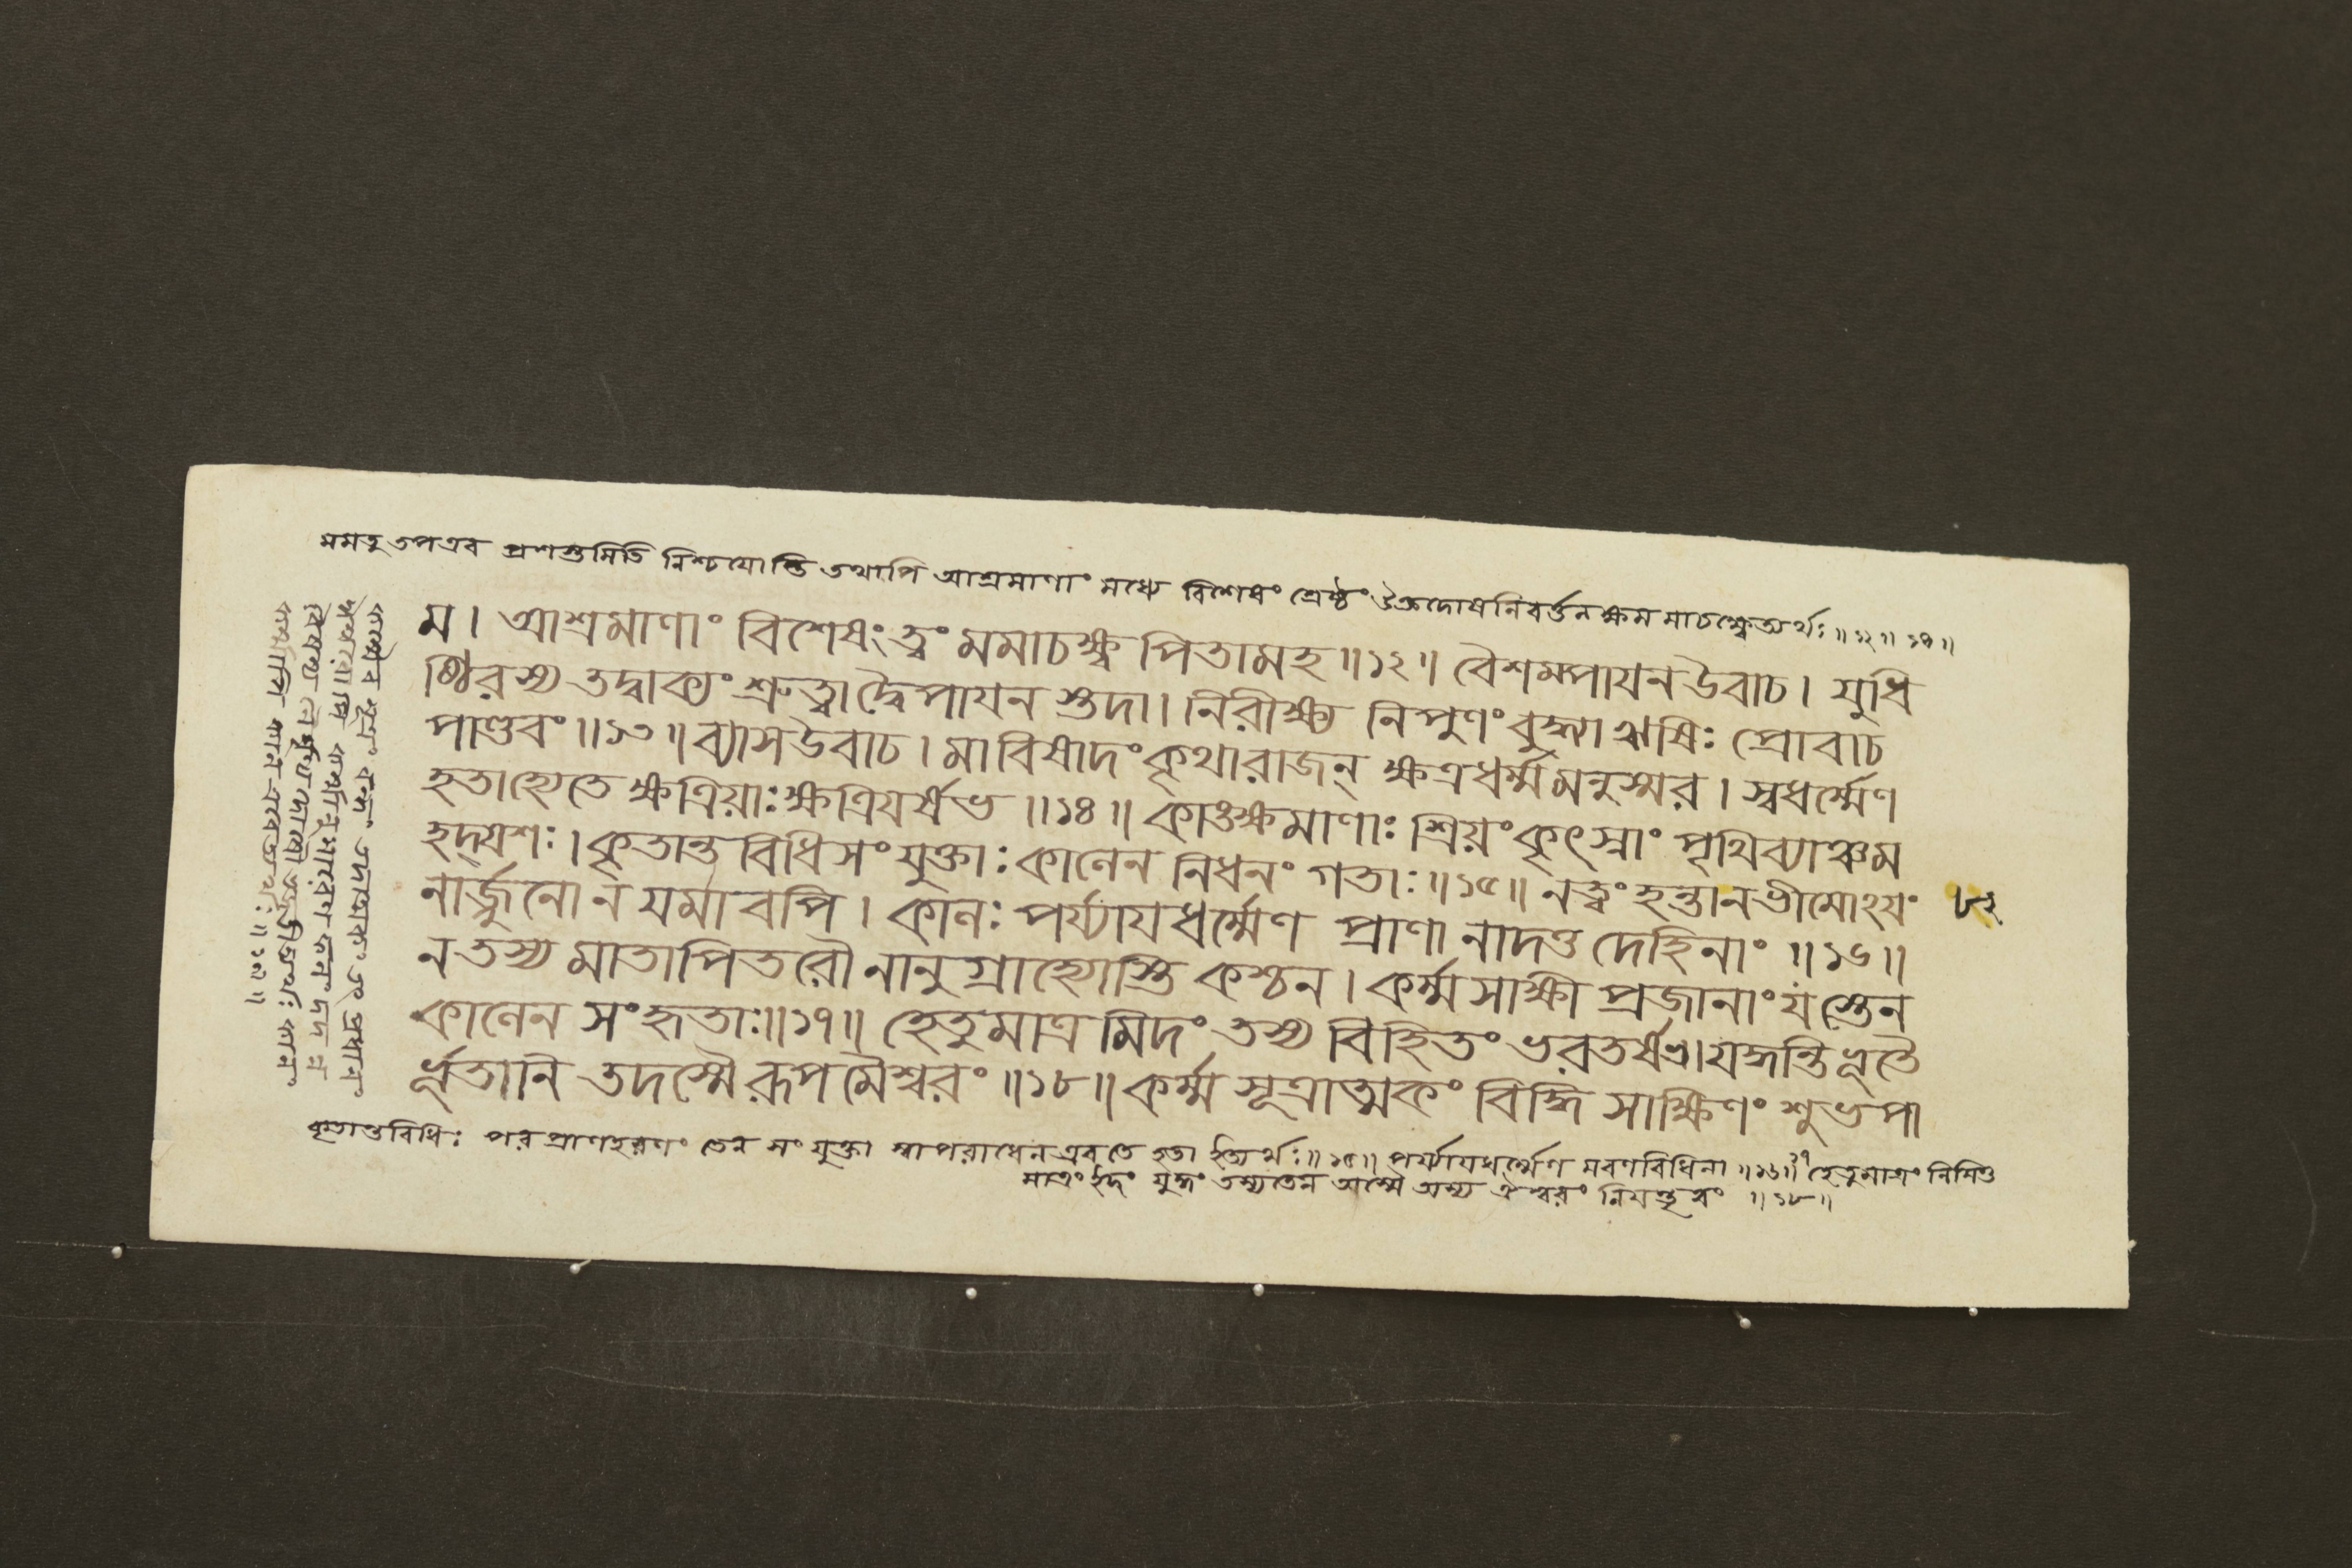 মমতু তপএব প্রশস্তমিতি নিশ্চযোস্তি তথাপি আশ্রমাণাং মধ্যে বিশেষং শ্রেষ্ঠং উক্তদোষনিবর্ত্তনক্ষম মাচক্ষ্বেত্যর্থঃ ॥১২॥১৩॥
ম। আশ্রমাণাং বিশেষং ত্বং মমাচক্ষ্ব পিতামহ॥১২॥ বৈশম্পাযনউবাচ। যুধি
ষ্ঠিরস্য তদ্বাক্যং শ্রুত্বা দ্বৈপাযন স্তদা। নিরীক্ষ্য নিপুণং বুদ্ধ্যা ঋষিঃ প্রোবাচ
পাণ্ডবং॥১৩॥ ব্যাসউবাচ। মাবিষাদং কৃথারাজন্ ক্ষত্রধর্ম্মমনুস্মর। স্বধর্ম্মেণ
হতাহ্যেতে ক্ষত্রিয়াঃ ক্ষত্রিযর্ষভ॥১৪॥ কাঙক্ষমাণাঃ শ্রিয়ং কৃৎস্নাং পৃথিব্যাঞ্চম
হদ্যশঃ। কৃতান্ত বিধিসংযুক্তাঃ কালেন নিধনং গতাঃ॥১৫॥ নত্বং হন্তানভীমোঽযং
নার্জ্জুনো ন যমাবপি। কালঃ পর্য্যাযধর্ম্মেণ প্রাণানাদত্ত দেহিনাং॥১৬॥
৮২
নতস্য মাতাপিতরৌ নানুগ্রাহ্যোস্তি কশ্চন। কর্ম্মসাক্ষী প্রজানাং যস্তেন
কালেন সংহৃতাঃ॥১৭॥ হেতুমাত্র মিদং তস্য বিহিতং ভরতর্ষভ। যদ্ধন্তি ভূতৈ
র্ভূতানি তদস্মৈ রূপমৈশ্বরং॥১৮॥ কর্ম্মসূত্রাত্মকং বিদ্ধি সাক্ষিণং শুভপা
কৃতান্তবিধিঃ পরপ্রাণহরণং তেন সংযুক্তা স্বাপরাধেনএব তে হতা ইত্যর্থঃ॥১৫॥ পর্য্যাযধর্ম্মেণ মরণবিধিনা॥১৬॥১৭ হেতুমাত্রং নিমিত্ত
মাত্রং ইদং যুদ্ধং তস্য তেন অস্মৈ অস্য ঐশ্বরং নিযন্তৃরং॥১৮॥